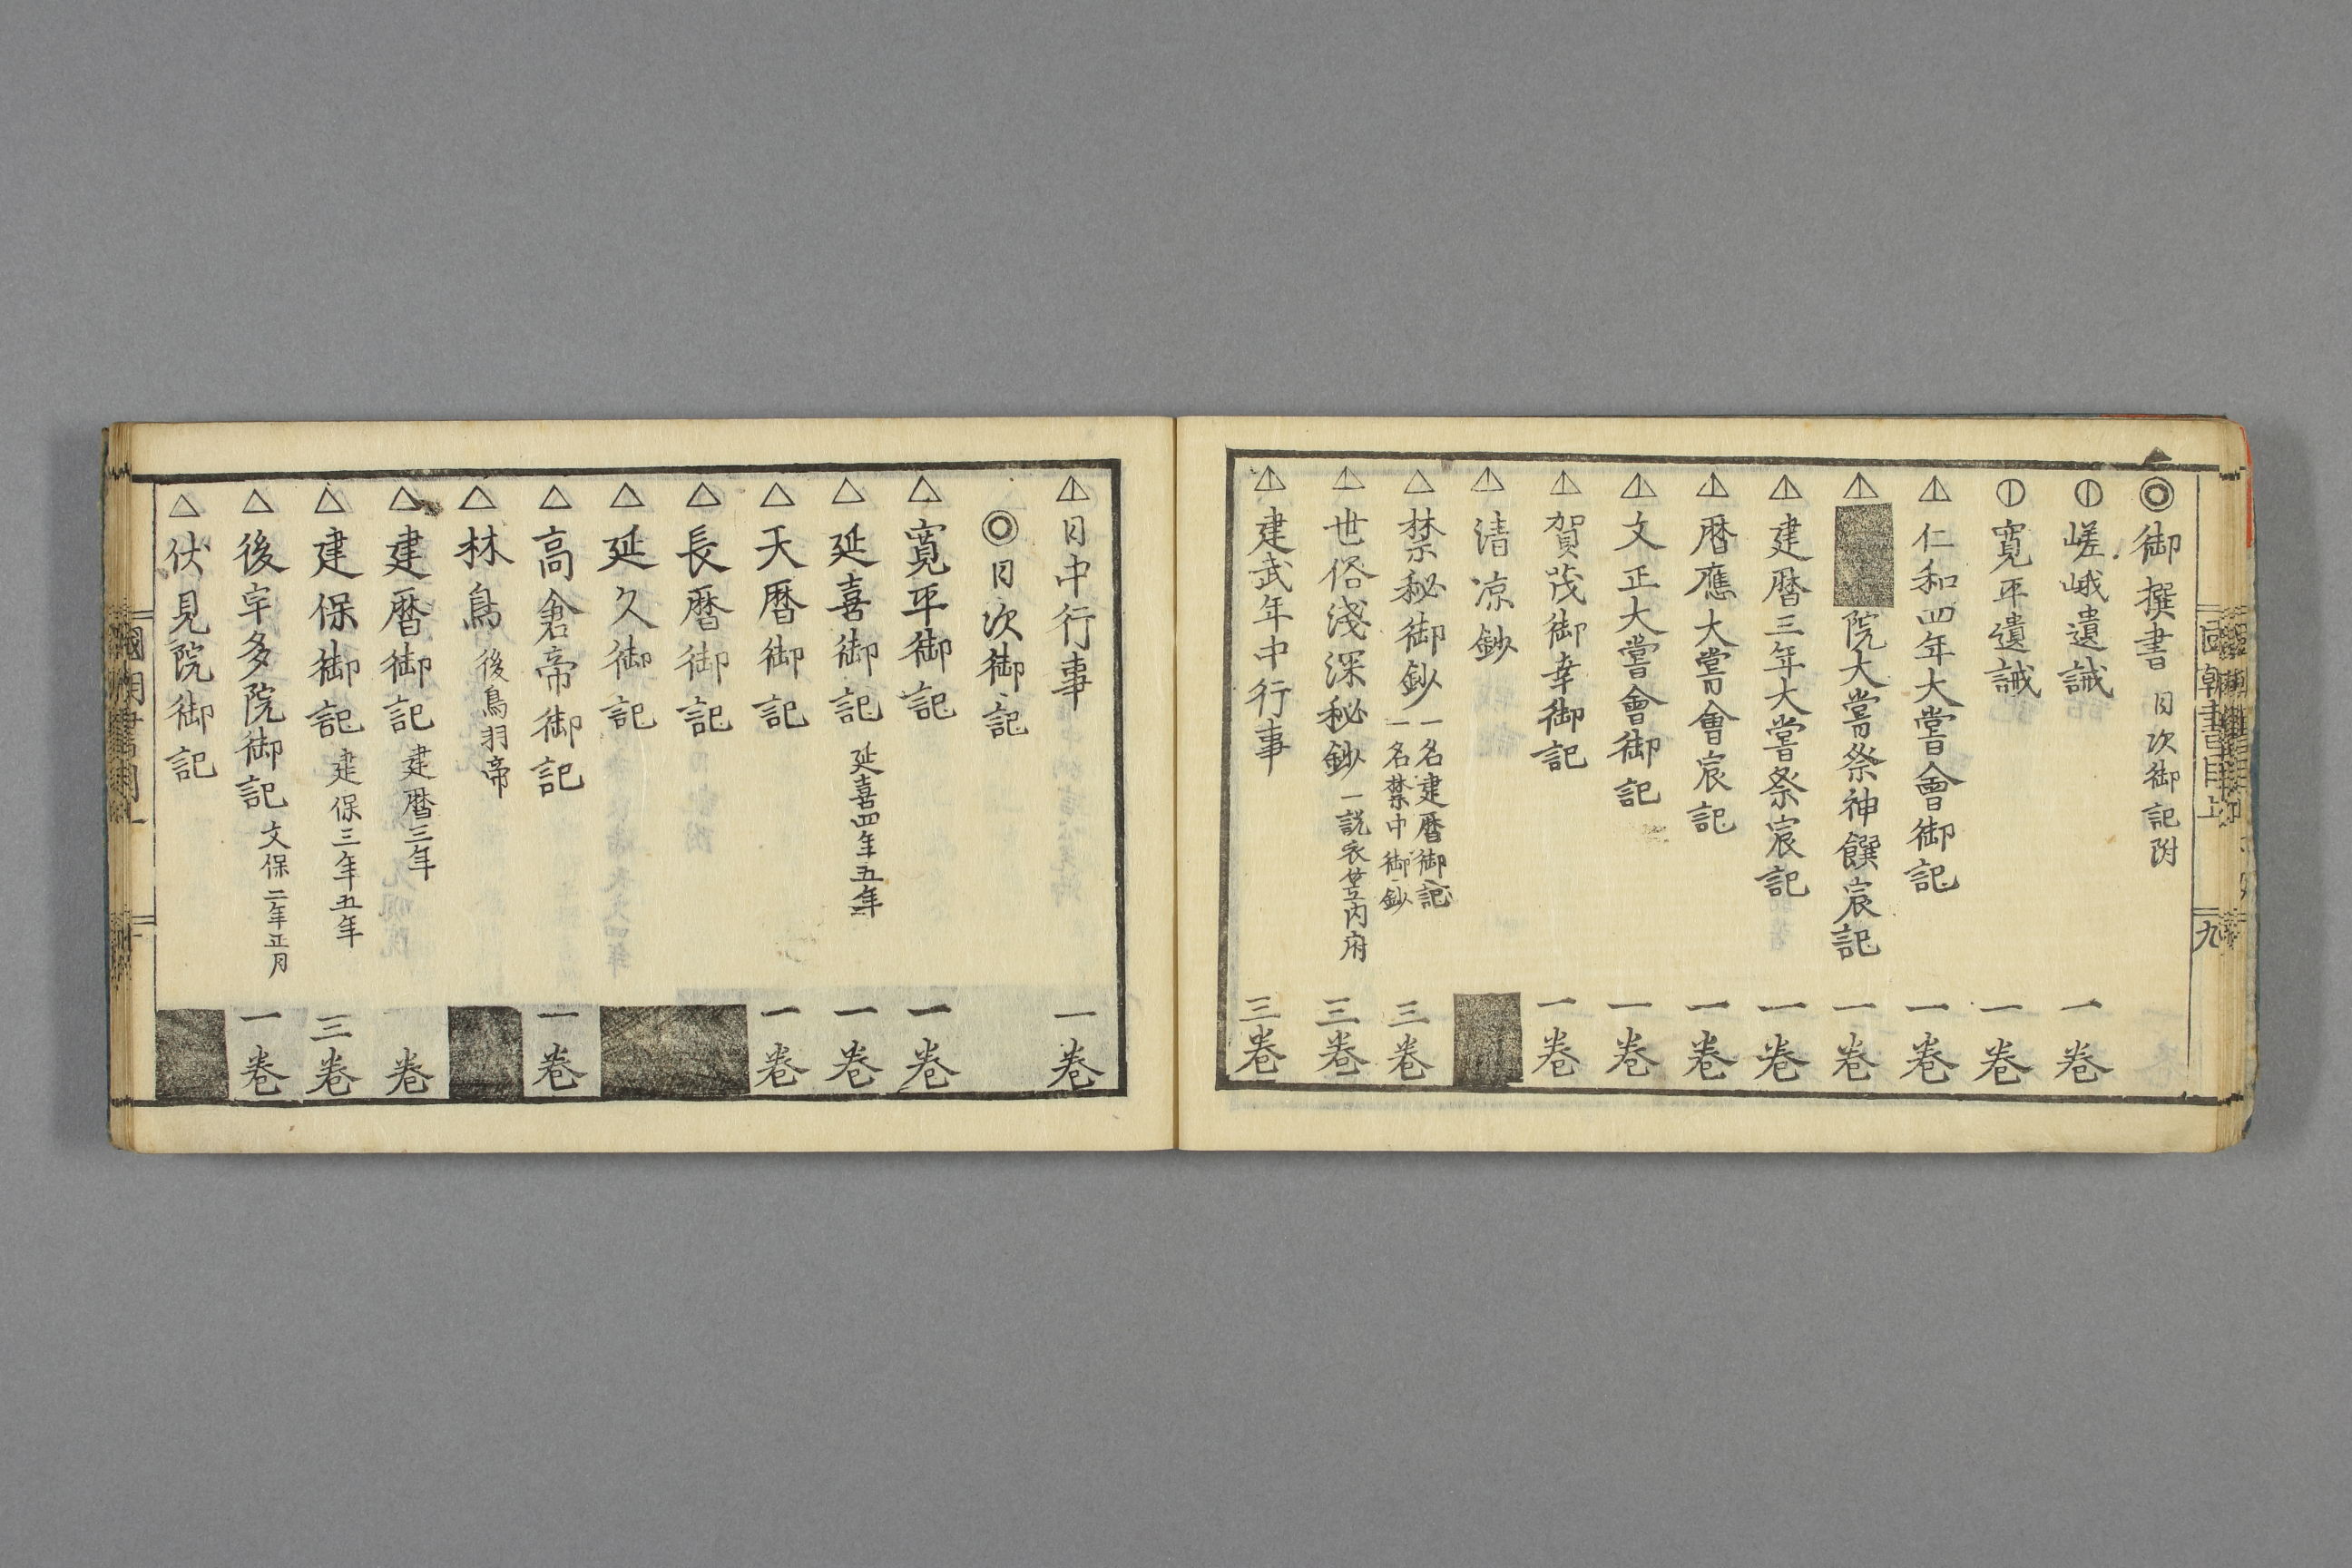 ◎御撰書 日次御記附
嵯峨遺誡 一卷
寛平遺誡 一卷
△仁和四年大嘗會御記 一卷
△■■院大嘗祭神饌宸記 一卷
△建暦三年大嘗祭宸記 一卷
△暦應大嘗會宸記 一卷
△文正大嘗會御記 一卷
△賀茂御幸御記 一卷
△清凉鈔 ■■
△禁秘御鈔 一名建暦御記 一名禁中御鈔 三卷
△世俗淺深秘鈔 一説衣笠内府 三卷
△建武年中行事 三卷
國朝書目上 九
△日中行事 一卷
◎日次御記
△寛平御記 一卷
△延喜御記 延喜四年五年 一卷
△天暦御記 一卷
△長暦御記 ■■
△延久御記 ■■
△高倉帝御記 一卷
△林鳥 後鳥羽帝 ■■
△建暦御記 建暦三年 卷
△建保御記 建保三年五年 三卷
△後宇多院御記 文保二年正月 一卷
△伏見院御記 ■■